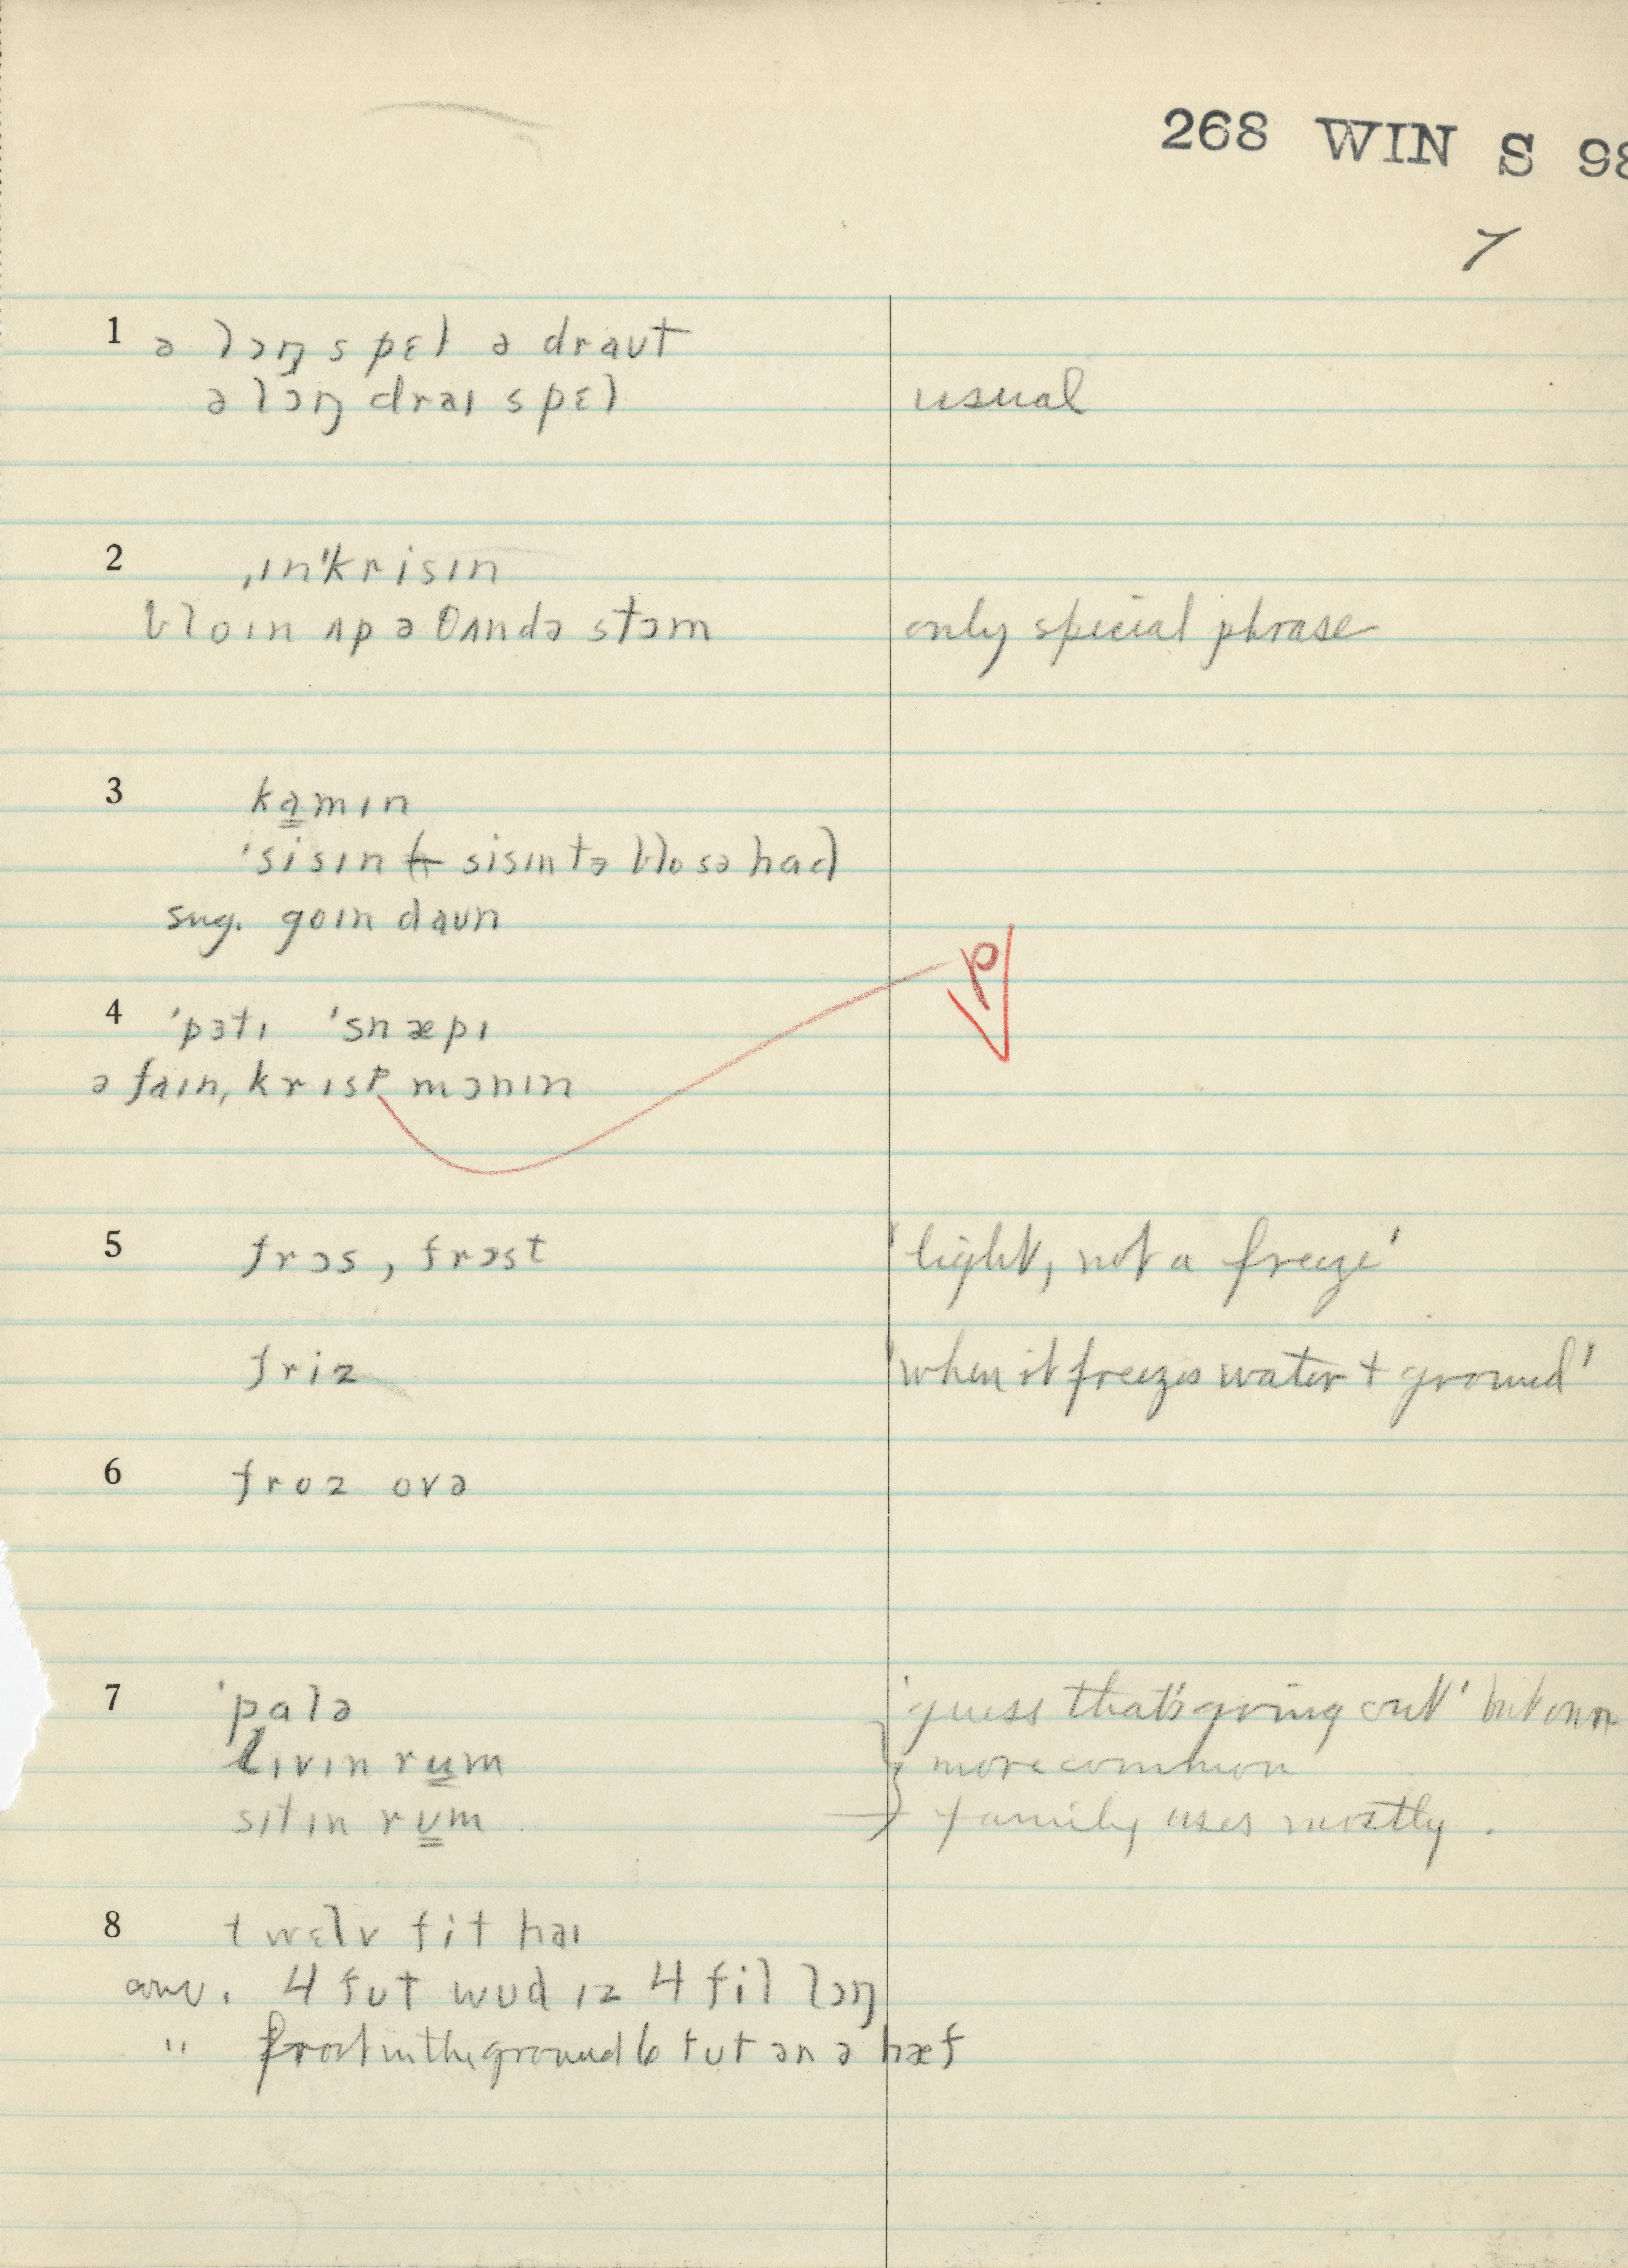 268 WIN S 98
7
1 ə lɔŋ spɛl ə draʊt
ə lɔŋ draɪ spɛl usual
2 ˌɪnˈkrisɪn
bloɪn ʌp ə θʌndə stɔm only special phrase
3 kamɪn
ˈsisɪn sisɪn tə blo sə had
sug. goɪn daʊn
4 ˈpɜtɪ ˈsnæpɪ
ə faɪn, krɪsp mɔnɪn p
5 frɔs, frɔst 'light, not a freeze'
friz 'when it freezes water + ground'
6 froz ovə
7 ˈpalə 'guess that's going out' but
lɪvɪn rum more common
sɪtɪn rʊm family uses mostly.
8 twɛlv fit haɪ
4 fʊt wʊd ɪz 4 fit lɔŋ
" frost in the ground 6 fʊt ən ə hæf